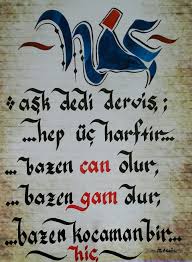 hiç
* aşk dedi derviş;
...hep üç harftir...
...bazen can olur,
...bazen gam olur,
...bazen kocaman bir...
hiç